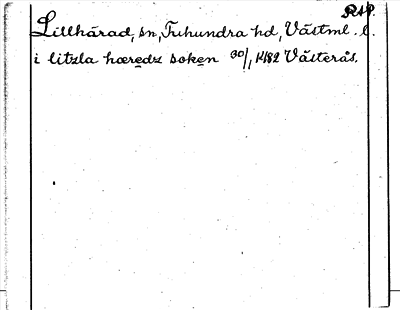 RAP.
Lillhärad, sn, Tuhundra hd, Västml. l.
i litzla hæredz soken 30/1 1482 Västerås.